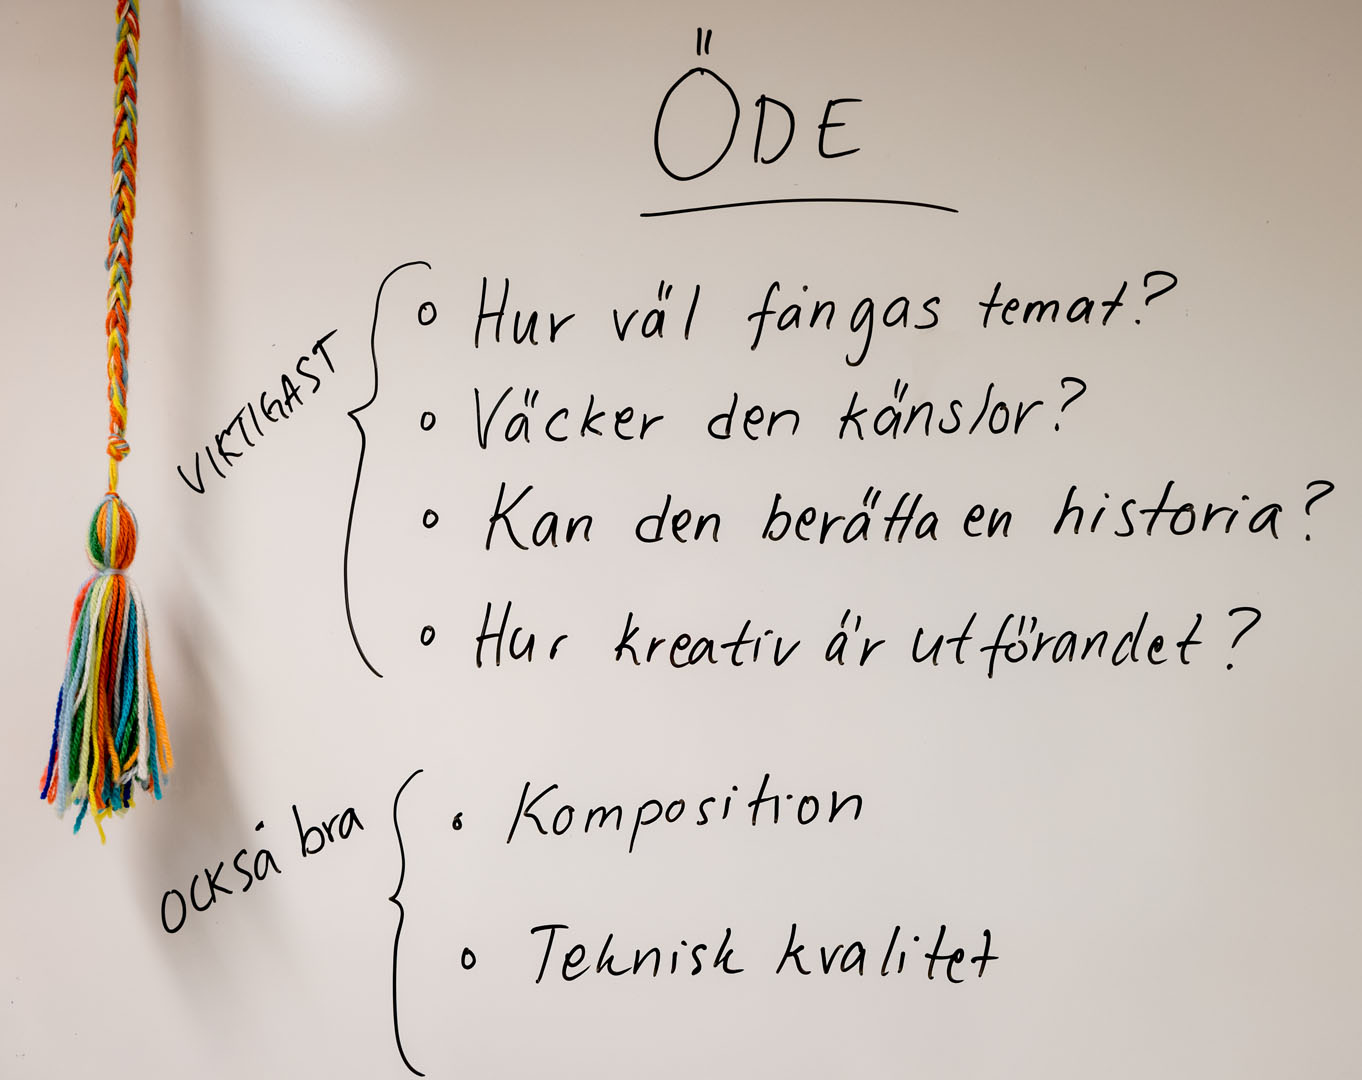 ÖDE
VIKTIGAST
• Hur väl fångas temat?
• Väcker den känslor?
• Kan den berätta en historia?
• Hur kreativ är utförandet?
OCKSÅ bra
• Komposition
• Teknisk kvalitet